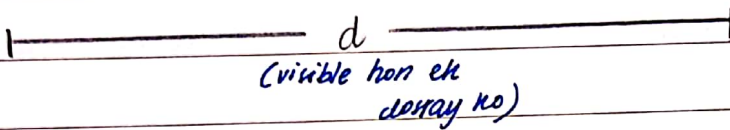 d
(visible hon ek
dosray ko)